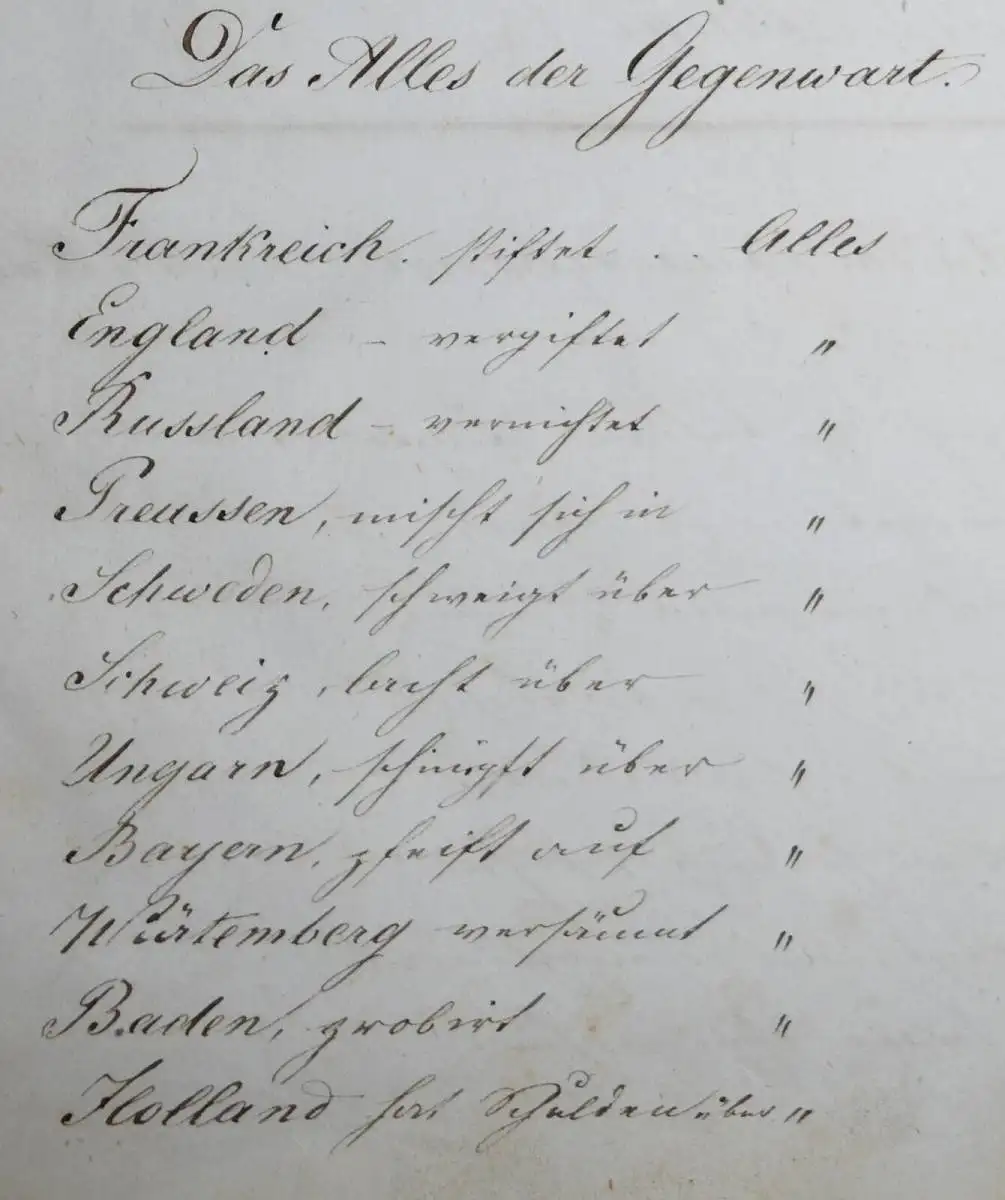 Das Alles der Gegenwart.
Frankreich. stiftet .. Alles
England – vergiftet "
Russland – vernichtet "
Preussen, mischt sich in "
Schweden, schweigt über "
Schweiz, lacht über "
Ungarn, schimpft über "
Bayern, pfeift auf "
Würtemberg versäumt "
Baden, probirt "
Holland hat Schulden über "